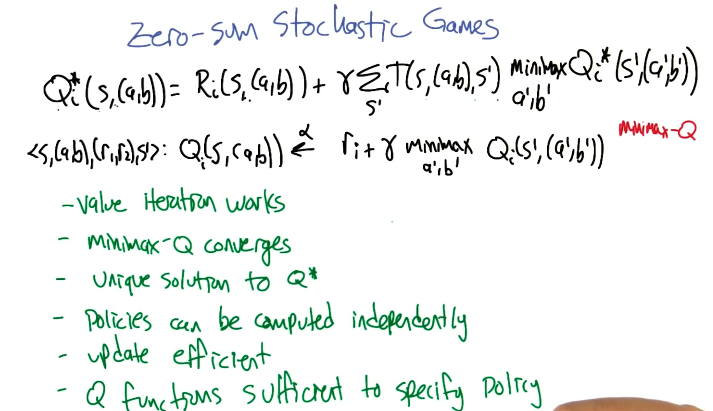 Zero-sum Stochastic Games
Qᵢ*(s,(a,b)) = Rᵢ(s,(a,b)) + γ Σ_s' T(s,(a,b),s') minimax_a',b' Qᵢ*(s',(a',b'))
<s,(a,b),(r₁,r₂),s'>: Qᵢ(s,(a,b)) ←^α rᵢ + γ minimax_a',b' Qᵢ(s',(a',b')) minimax-Q
- value iteration works
- minimax-Q converges
- unique solution to Q*
- policies can be computed independently
- update efficient
- Q functions sufficient to specify policy